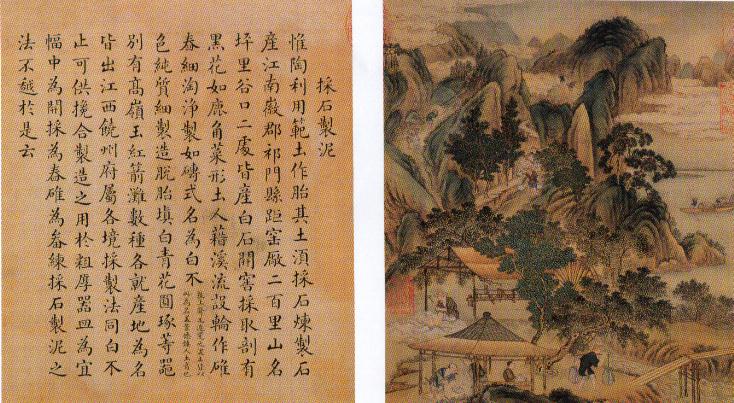 採石製泥
惟陶利用範土作胎其土須採石煉製石
產江南徽郡祁門縣距窑厰二百里山名
坪里谷口二處皆產白石開窖採取剖有
黑花如鹿角菜形土人藉溪流設輪作碓
舂細淘淨製如磚式名為白不
色純質細製造脫胎填白青花圓琢等器
別有高嶺玉紅箭灘數種各就產地為名
皆出江西饒州府屬各境採製法同白不
止可供攙合製造之用於粗厚器皿為宜
幅中為開採為舂碓為練採石製泥之
法不越於是云